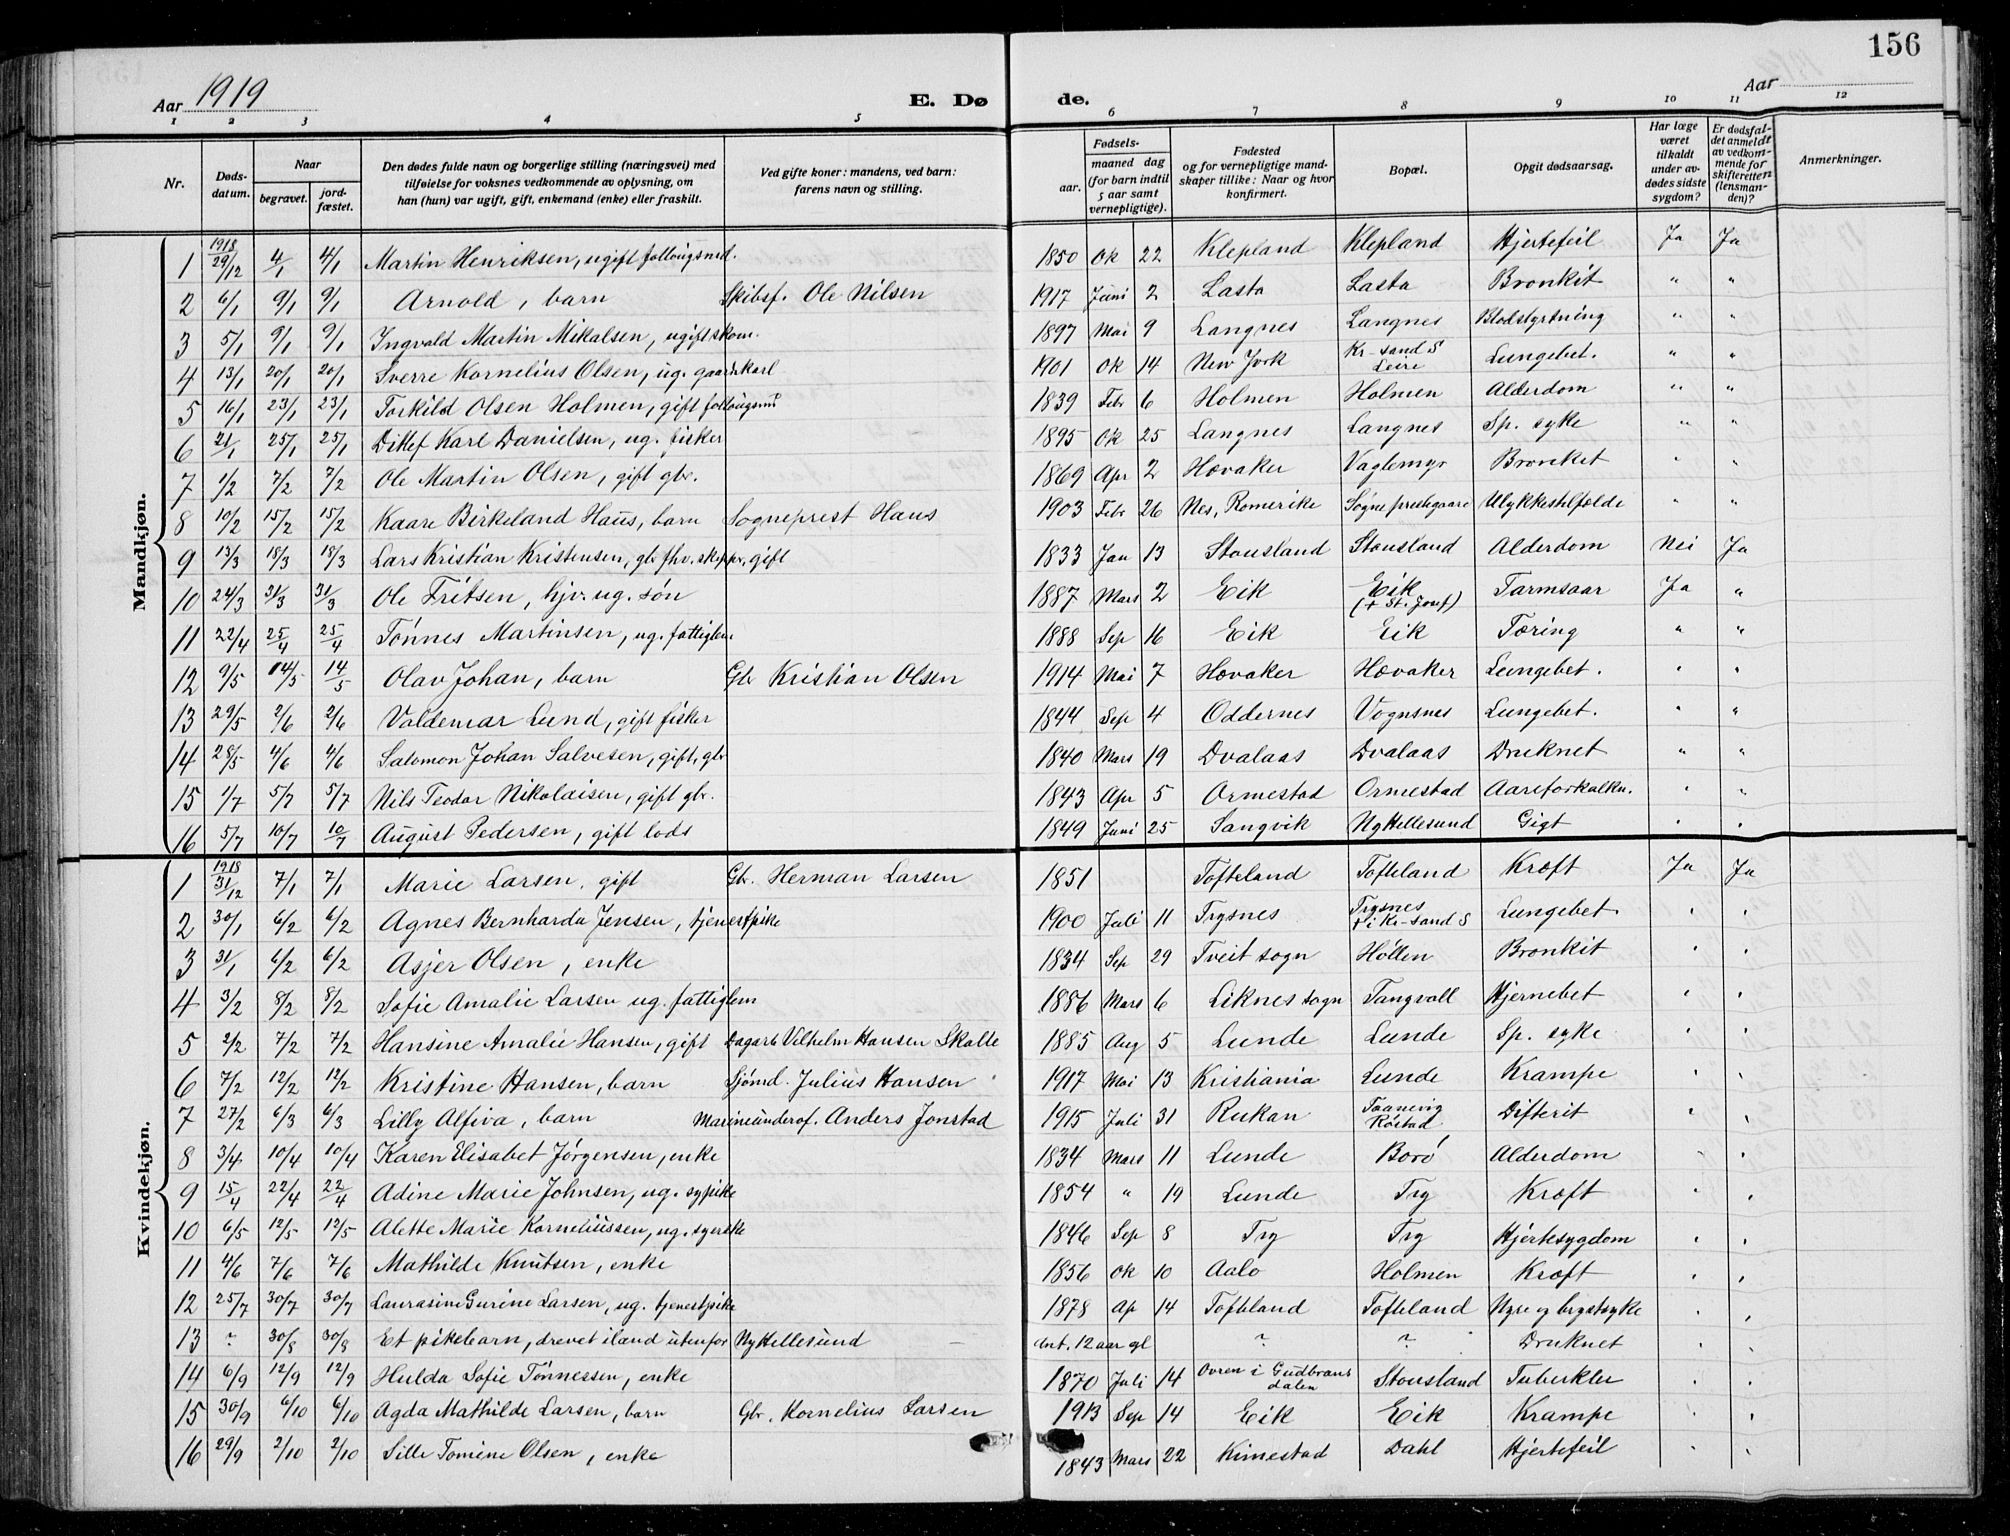 156
Aar 1919 E. Dø de. Aar
1 2 3 4 5 6 7 8 9 10 11 12
Nr. Døds-datum. Naar begravet. jord-fæstet. Den dødes fulde navn og borgerlige stilling (næringsvei) med tilføielse for voksnes vedkommende av oplysning, om han (hun) var ugift, gift, enkemand (enke) eller fraskilt. Ved gifte koner: mandens, ved barn: farens navn og stilling. Fødsels- aar. maaned dag (for barn indtil 5 aar samt vernepligtige). Fødested og for vernepligtige mand-skaper tillike: Naar og hvor konfirmert. Bopæl. Opgit dødsaarsag. Har læge været tilkaldt under av-dødes sidste sygdom? Er dødsfal-det anmeldt av vedkom-mende for skifteretten (lensman-den)? Anmerkninger.
Mandkjøn.
1 1918 29/12 4/1 4/1 Martin Henriksen, ugift føllougsmd. 1850 Ok 22 Klepland Klepland Hjertefeil Ja Ja
2 6/1 9/1 9/1 Arnold, barn Skibsf. Ole Nilsen 1917 Juni 2 Lasta Lasta Bronkit " "
3 5/1 9/1 9/1 Ingvald Martin Mikalsen, ugift skom. 1897 Mai 9 Langnes Langnes Blodstyrtning " "
4 13/1 20/1 20/1 Sverre Kornelius Olsen, ug. gaardskarl 1901 Ok 14 New York Kr-sand S Leire Lungebet. " "
5 16/1 23/1 23/1 Torkild Olsen Holmen, gift føllougsmd 1839 Febr 6 Holmen Holmen Alderdom " "
6 21/1 25/1 25/1 Ditlef Karl Danielsen, ug. fisker 1895 Ok 25 Langnes Langnes Sp. syke " "
7 1/2 7/2 7/2 Ole Martin Olsen, gift gbr. 1869 Apr 2 Hævaker Vaglemyr Bronket " "
8 10/2 15/2 15/2 Kaare Birkeland Haus, barn Sogneprest Haus 1903 Febr 26 Nes, Romerike Søgne prestegaard Ulykkestilfælde " "
9 13/3 18/3 18/3 Lars Kristian Kristensen, gbr fhv. skipper, gift 1833 Jan 13 Stousland Stousland Alderdom Nei Ja
10 24/3 31/3 31/3 Ole Fritsen, hjv. ug. søn 1887 Mars 2 Eik Eik (+ St. Josef) Tarmsaar Ja "
11 22/4 25/4 25/4 Tønnes Martinsen, ug. fattiglem 1888 Sep 16 Eik Eik Tæring " "
12 9/5 14/5 14/5 Olav Johan, barn Gbr Kristian Olsen 1914 Mai 7 Hævaker Hævaker Lungebet. " "
13 29/5 2/6 2/6 Valdemar Lund, gift fisker 1844 Sep 4 Oddernes Vognsnes Lungebet. " "
14 28/5 4/6 4/6 Salomon Johan Salvesen, gift, gbr 1840 Mars 19 Dvalaas Dvalaas Druknet " "
15 1/7 5/7 5/7 Nils Teodor Nikolaisen, gift gbr. 1843 Apr 5 Ormestad Ormestad Aareforkalkn. " "
16 5/7 10/7 10/7 August Pedersen, gift lods 1849 Juni 25 Sangvik Ny Hellesund Gigt " "
Kvindekjøn.
1 1918 31/12 7/1 7/1 Marie Larsen, gift Gbr. Herman Larsen 1851 Tofteland Tofteland Kræft Ja Ja
2 30/1 6/2 6/2 Agnes Bernharda Jensen, tjenestpike 1900 Juli 11 Trysnes Trysnes + i Kr-sand S Lungebet. " "
3 31/1 6/2 6/2 Asjer Olsen, enke 1834 Sep 29 Tveit sogn Høllen Bronkit " "
4 3/2 8/2 8/2 Sofie Amalie Larsen ug. fattiglem 1886 Mars 6 Liknes sogn Tangvall Hjernebet " "
5 2/2 7/2 7/2 Hansine Amalie Hansen, gift Dagarb Vilhelm Hansen Skolte 1885 Aug 5 Lunde Lunde Sp. syke " "
6 7/2 12/2 12/2 Kristine Hansen, barn Sjømd. Julius Hansen 1917 Mai 13 Kristiania Lunde Krampe " "
7 27/2 6/3 6/3 Lilly Alfiva, barn Marineunderof. Anders Jonstad 1915 Juli 31 Rukan Taanevig Røstad Difterit " "
8 3/4 10/4 10/4 Karen Elisabet Jørgensen, enke 1834 Mars 11 Lunde Borø Alderdom " "
9 15/4 22/4 22/4 Adine Marie Johnsen, ug. sypike 1854 " 19 Lunde Try Kræft " "
10 6/5 12/5 12/5 Alette Marie Korneliussen, ug. syerske 1846 Sep 8 Try Try Hjertesygdom " "
11 4/6 7/6 7/6 Mathilde Knutsen, enke 1856 Ok 10 Aalo Holmen Kræft " "
12 25/7 30/7 30/7 Laurasine Gurine Larsen, ug. tjenestpike 1878 Ap 14 Tofteland Tofteland Nyre og brystsyke " "
13 ? 30/8 30/8 Et pikebarn, drevet iland utenfor Ny Hellesund Ant. 12 aar gl ? ? Druknet " "
14 6/9 12/9 12/9 Hulda Sofie Tønnessen, enke 1870 Juli 14 Ovren i Gudbrans dalen Stousland Tuberkler " "
15 30/9 6/10 6/10 Agda Mathilde Larsen, barn Gbr. Kornelius Larsen 1913 Sep 14 Eik Eik Krampe " "
16 29/9 2/10 2/10 Sille Tomine Olsen, enke 1843 Mars 22 Kimestad Dahl Hjertefeil " "